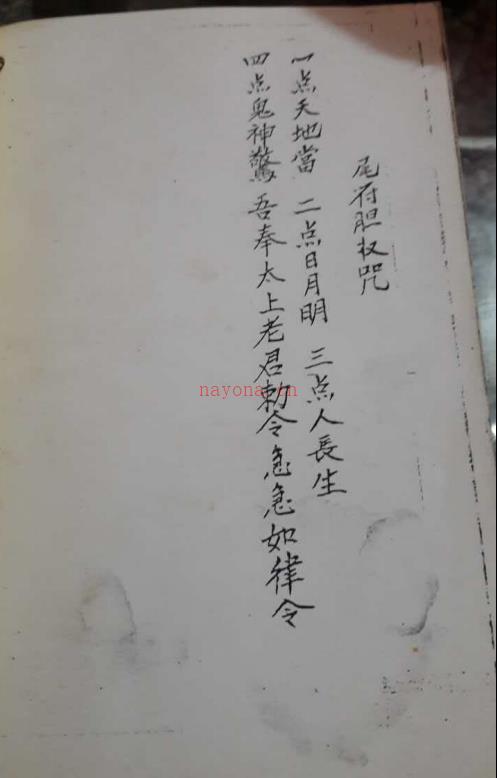 尾符胆杈咒
一点天地當 二点日月明 三点人長生
四点鬼神驚 吾奉太上老君勅令急急如律令
nayona.cn